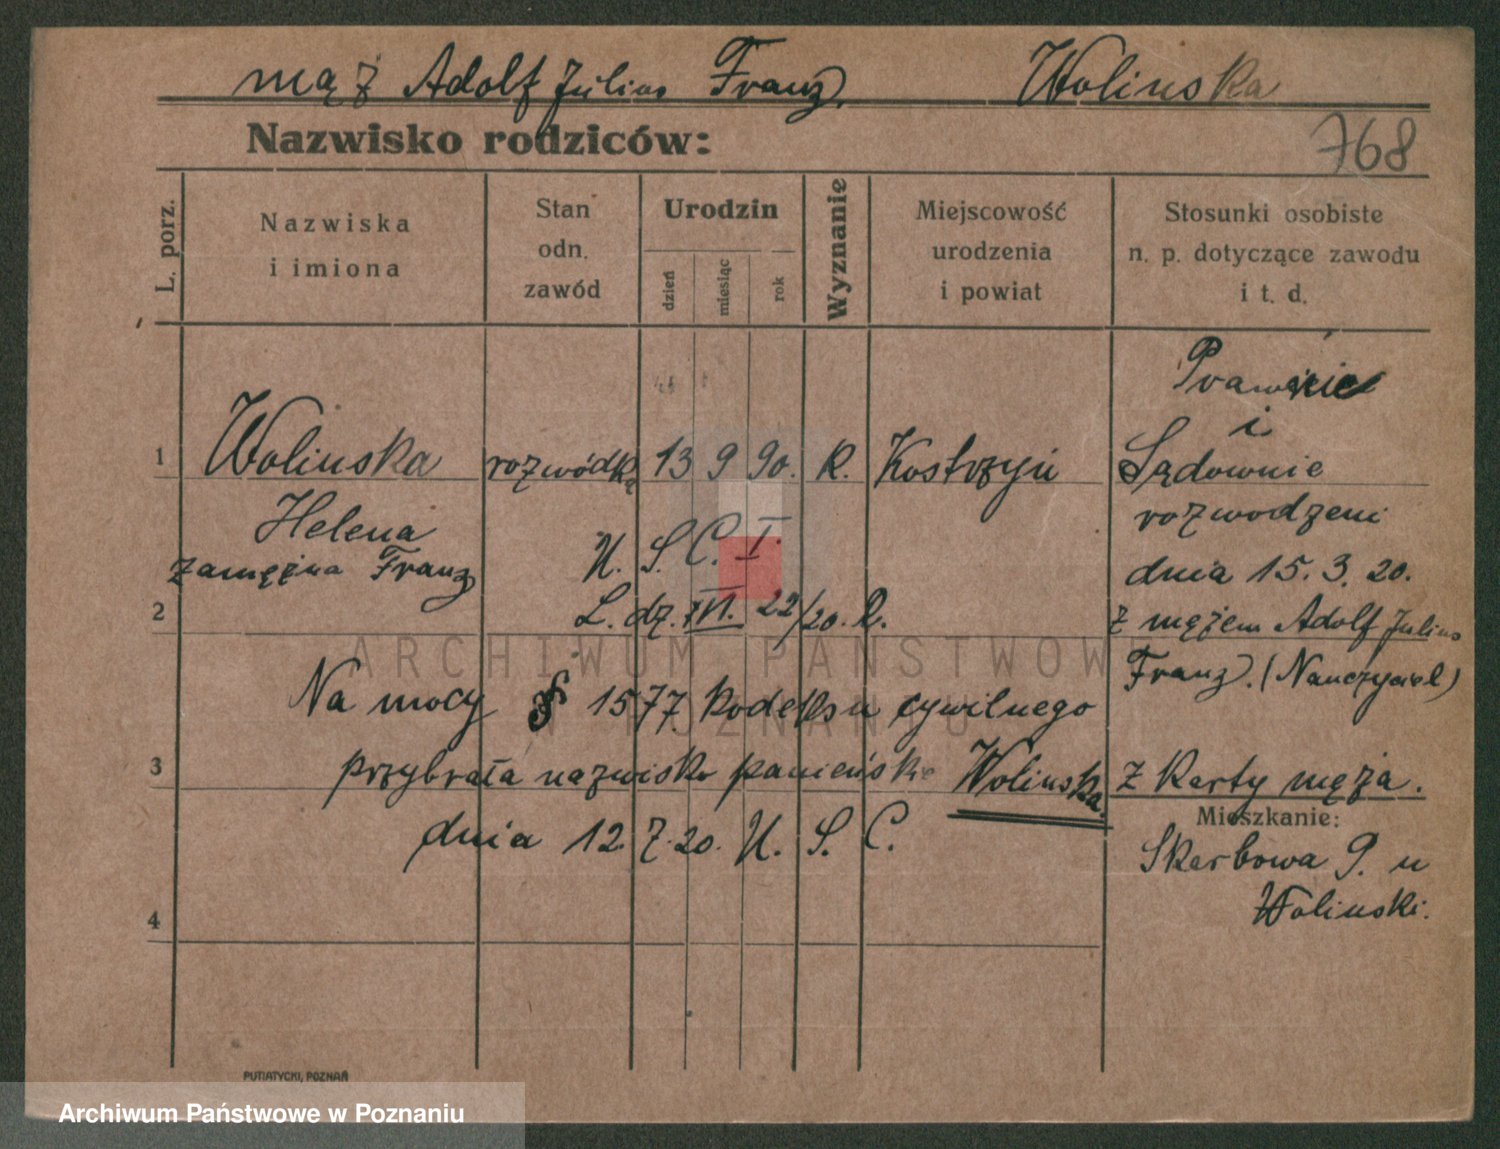 mąż Adolf Julius Franz. Wolinska
Nazwisko rodziców:
768
L. porz.
Nazwiska
i imiona
Stan
odn.
zawód
Urodzin
dzień
miesiąc
rok
Wyznanie
Miejscowość
urodzenia
i powiat
Stosunki osobiste
n. p. dotyczące zawodu
i t. d.
Prawnie
i
1 Wolinska rozwódka 13 9 90. k. Kostrzyń Sądownie
Helena
rozwodzeni
zamężna Franz
U. S. C. I.
dnia 15. 3. 20.
2 L. dz. VI. 22/20. R.
z mężem Adolf Julius
Franz. (Nauczyciel)
Na mocy § 1577. Kodeksu cywilnego
3 przybrała nazwisko panieńskie Wolinska. z Karty męża.
dnia 12. 7. 20. U. S. C.
Mieszkanie:
Skarbowa 9. u
Wolinski.
4
ARCHIWUM PAŃSTWOW
W POZNANIU
PUTIATYCKI, POZNAŃ
Archiwum Państwowe w Poznaniu